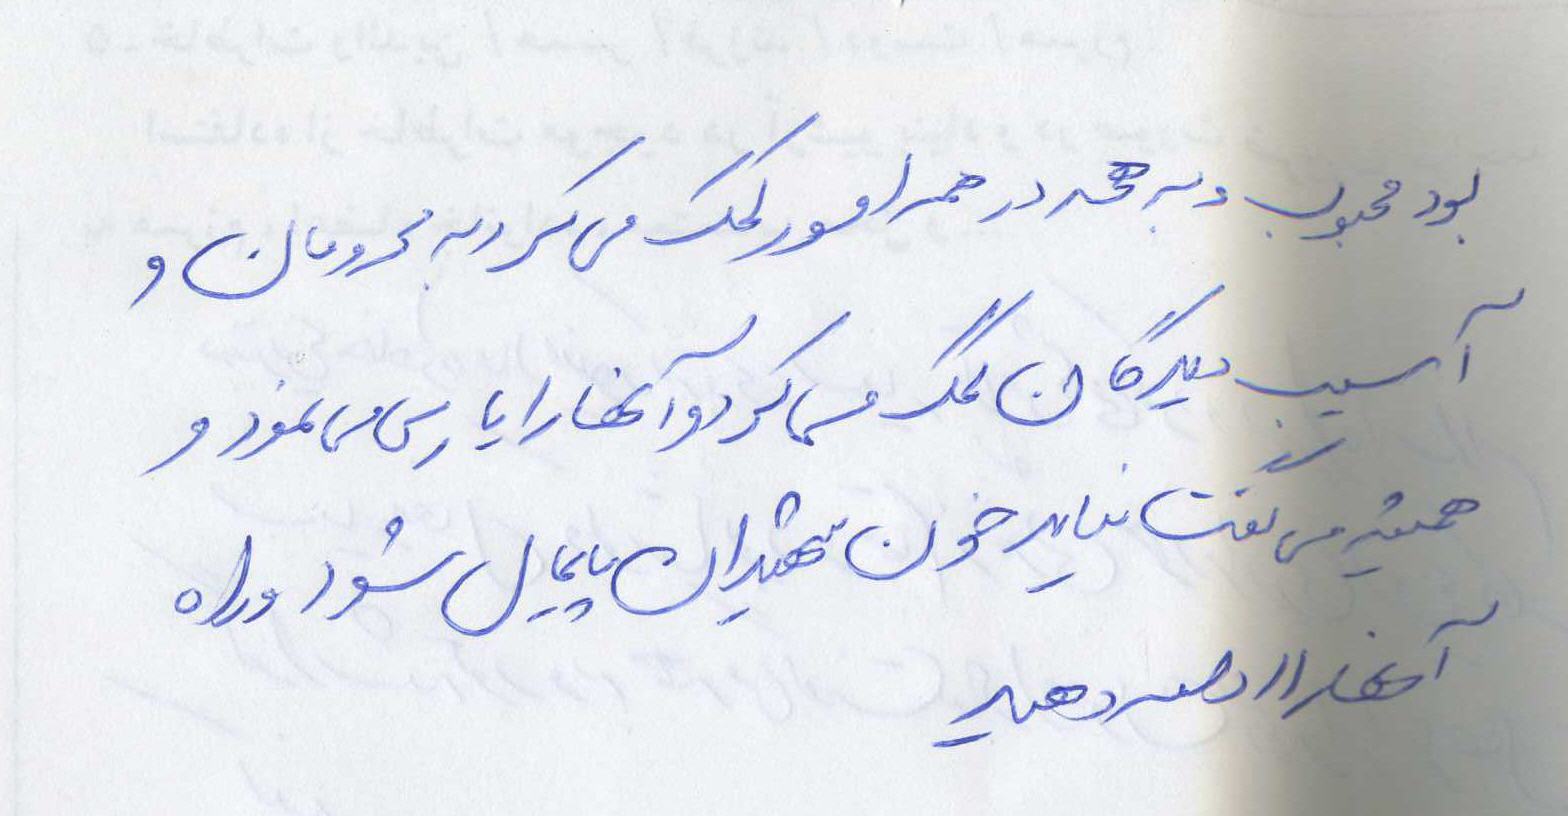 بود محبوب و به همه در همه امور کمک می کرد به محرومان و
آسیب دیدگان کمک می کرد و آنها را یاری می نمود و
همیشه می گفت نباید خون شهیدان پایمال شود و راه
آنها را ادامه دهید